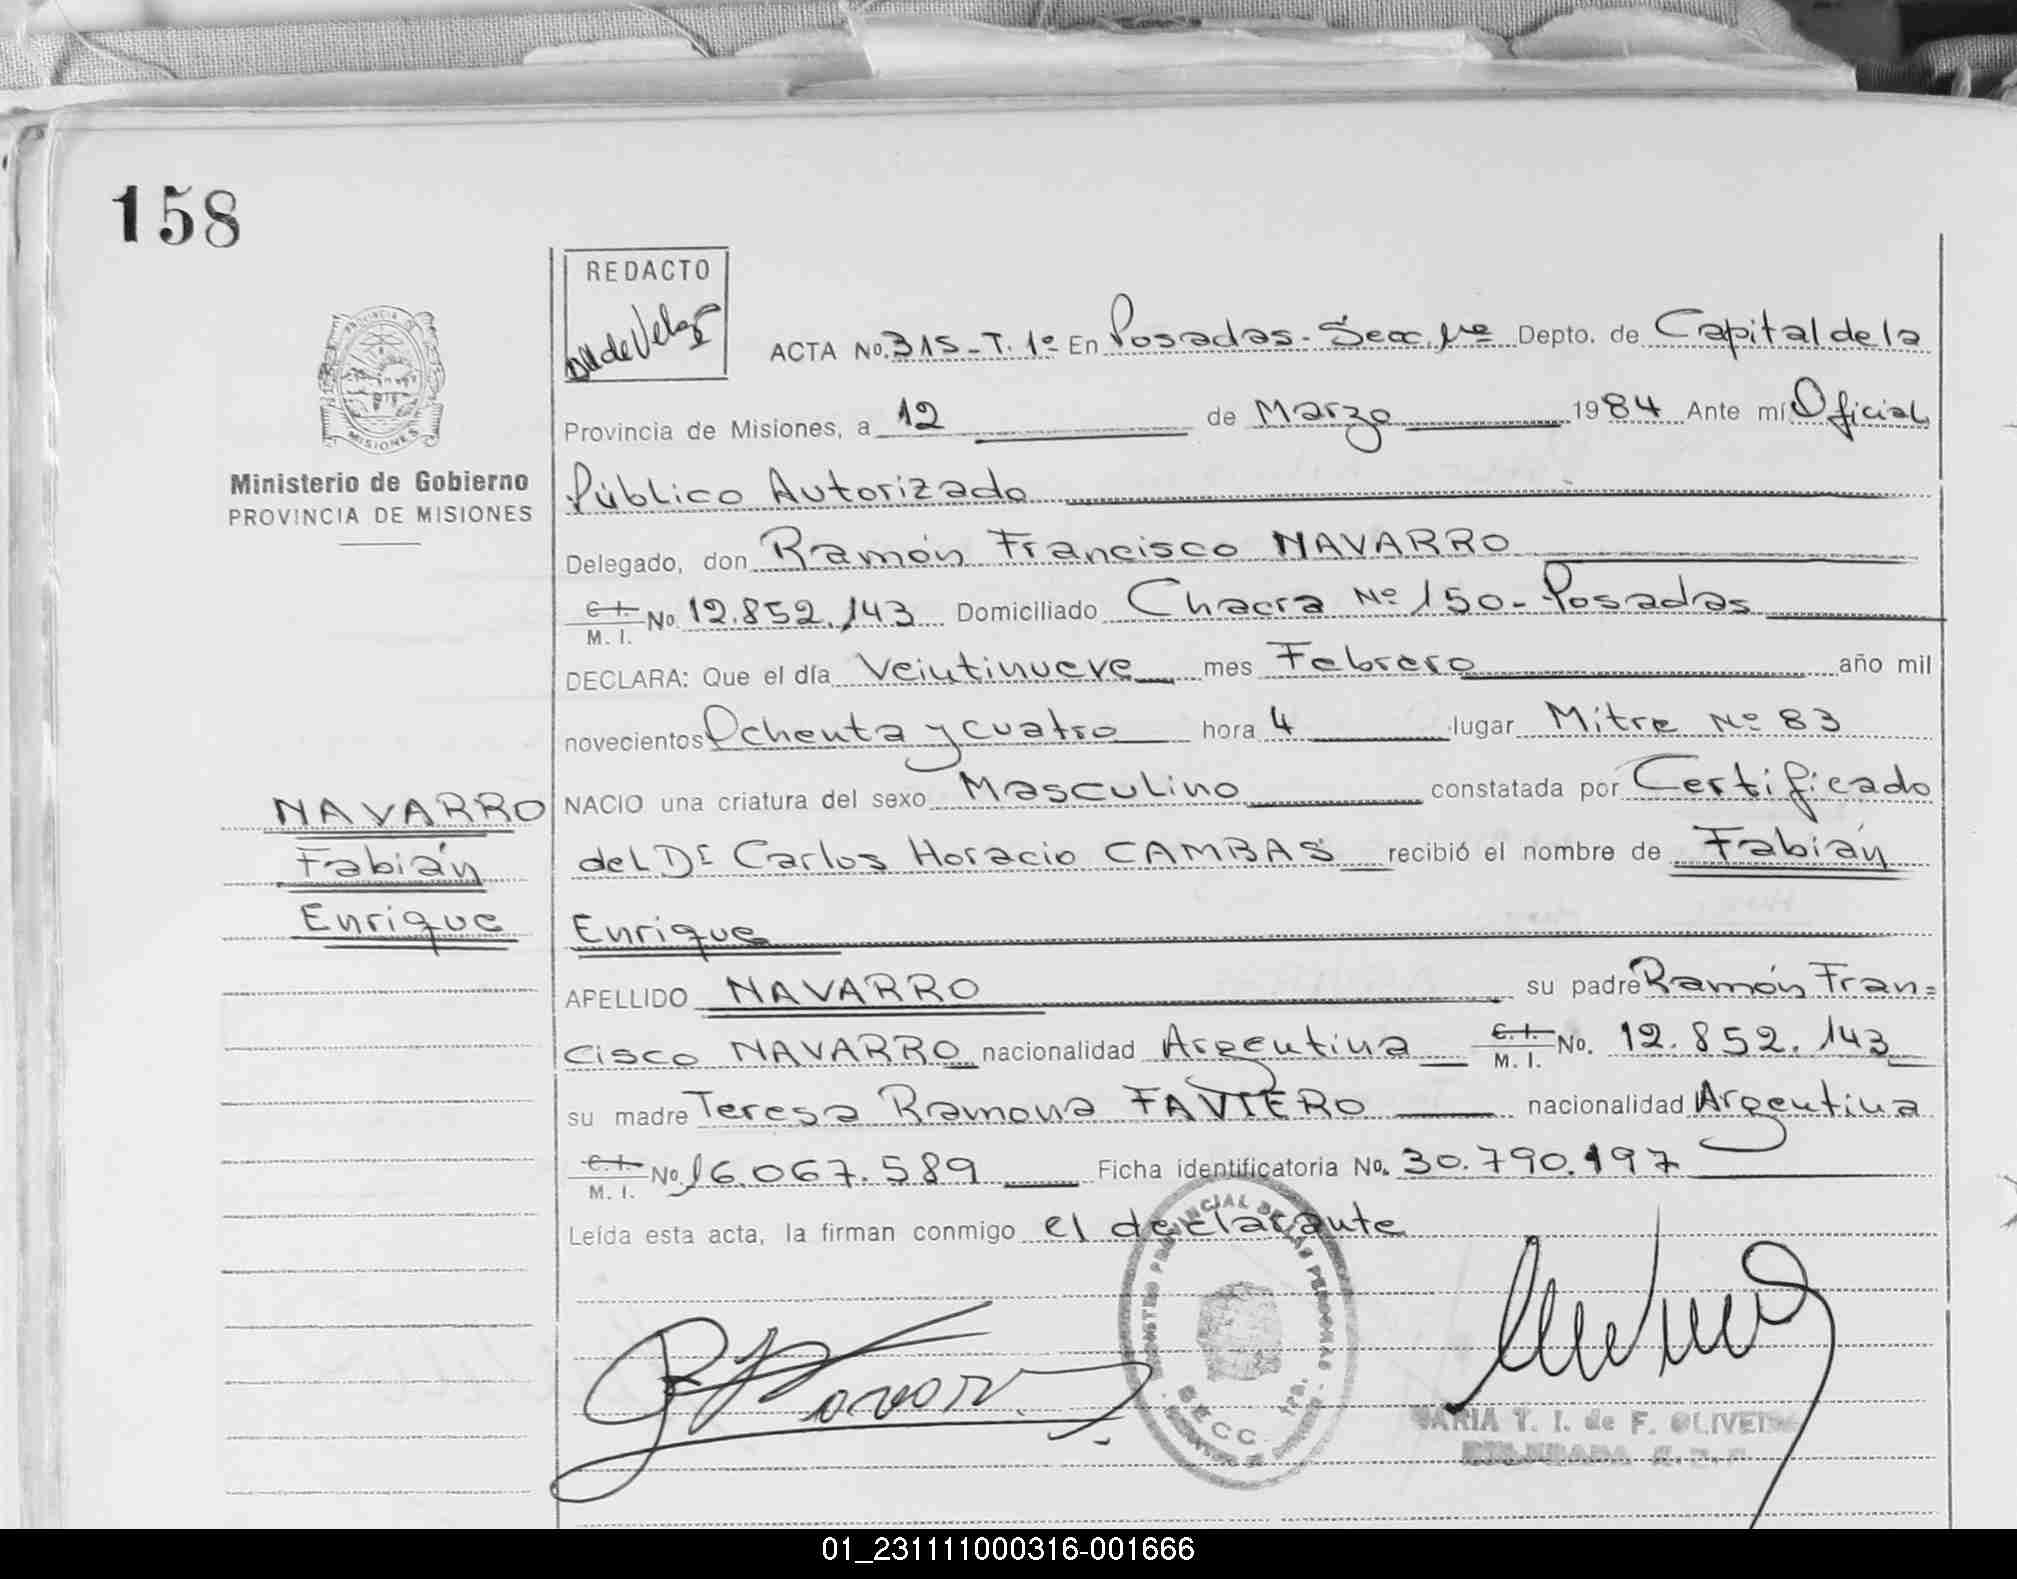 158
REDACTO
PROVINCIA DE
MISIONES
Ministerio de Gobierno
PROVINCIA DE MISIONES
ACTA No. 315-T. 1º En Posadas-Secc. 1ra Depto. de Capital de la
Provincia de Misiones, a 12 de Marzo 1984 Ante mí Oficial
Público Autorizado
Delegado, don Ramón Francisco NAVARRO
C. I. M. I. No. 12.852.143 Domiciliado Chacra Nº 150-Posadas
DECLARA: Que el día Veintinueve mes Febrero año mil
novecientos Ochenta y cuatro hora 4 lugar Mitre Nº 83
NACIO una criatura del sexo Masculino constatada por Certificado
del Dr Carlos Horacio CAMBAS recibió el nombre de Fabián
Enrique
NAVARRO
Fabián
Enrique
APELLIDO NAVARRO su padre Ramón Fran=
cisco NAVARRO nacionalidad Argentina C. I. M. I. No. 12.852.143
su madre Teresa Ramona FAVIERO nacionalidad Argentina
C. I. M. I. No. 16.067.589 Ficha identificatoria No. 30.790.197
Leída esta acta, la firman conmigo el declarante
REGISTRO PROVINCIAL DE LAS PERSONAS
SECC. 1ra.
MARIA T. I. de F. OLIVEIRA
01_231111000316-001666